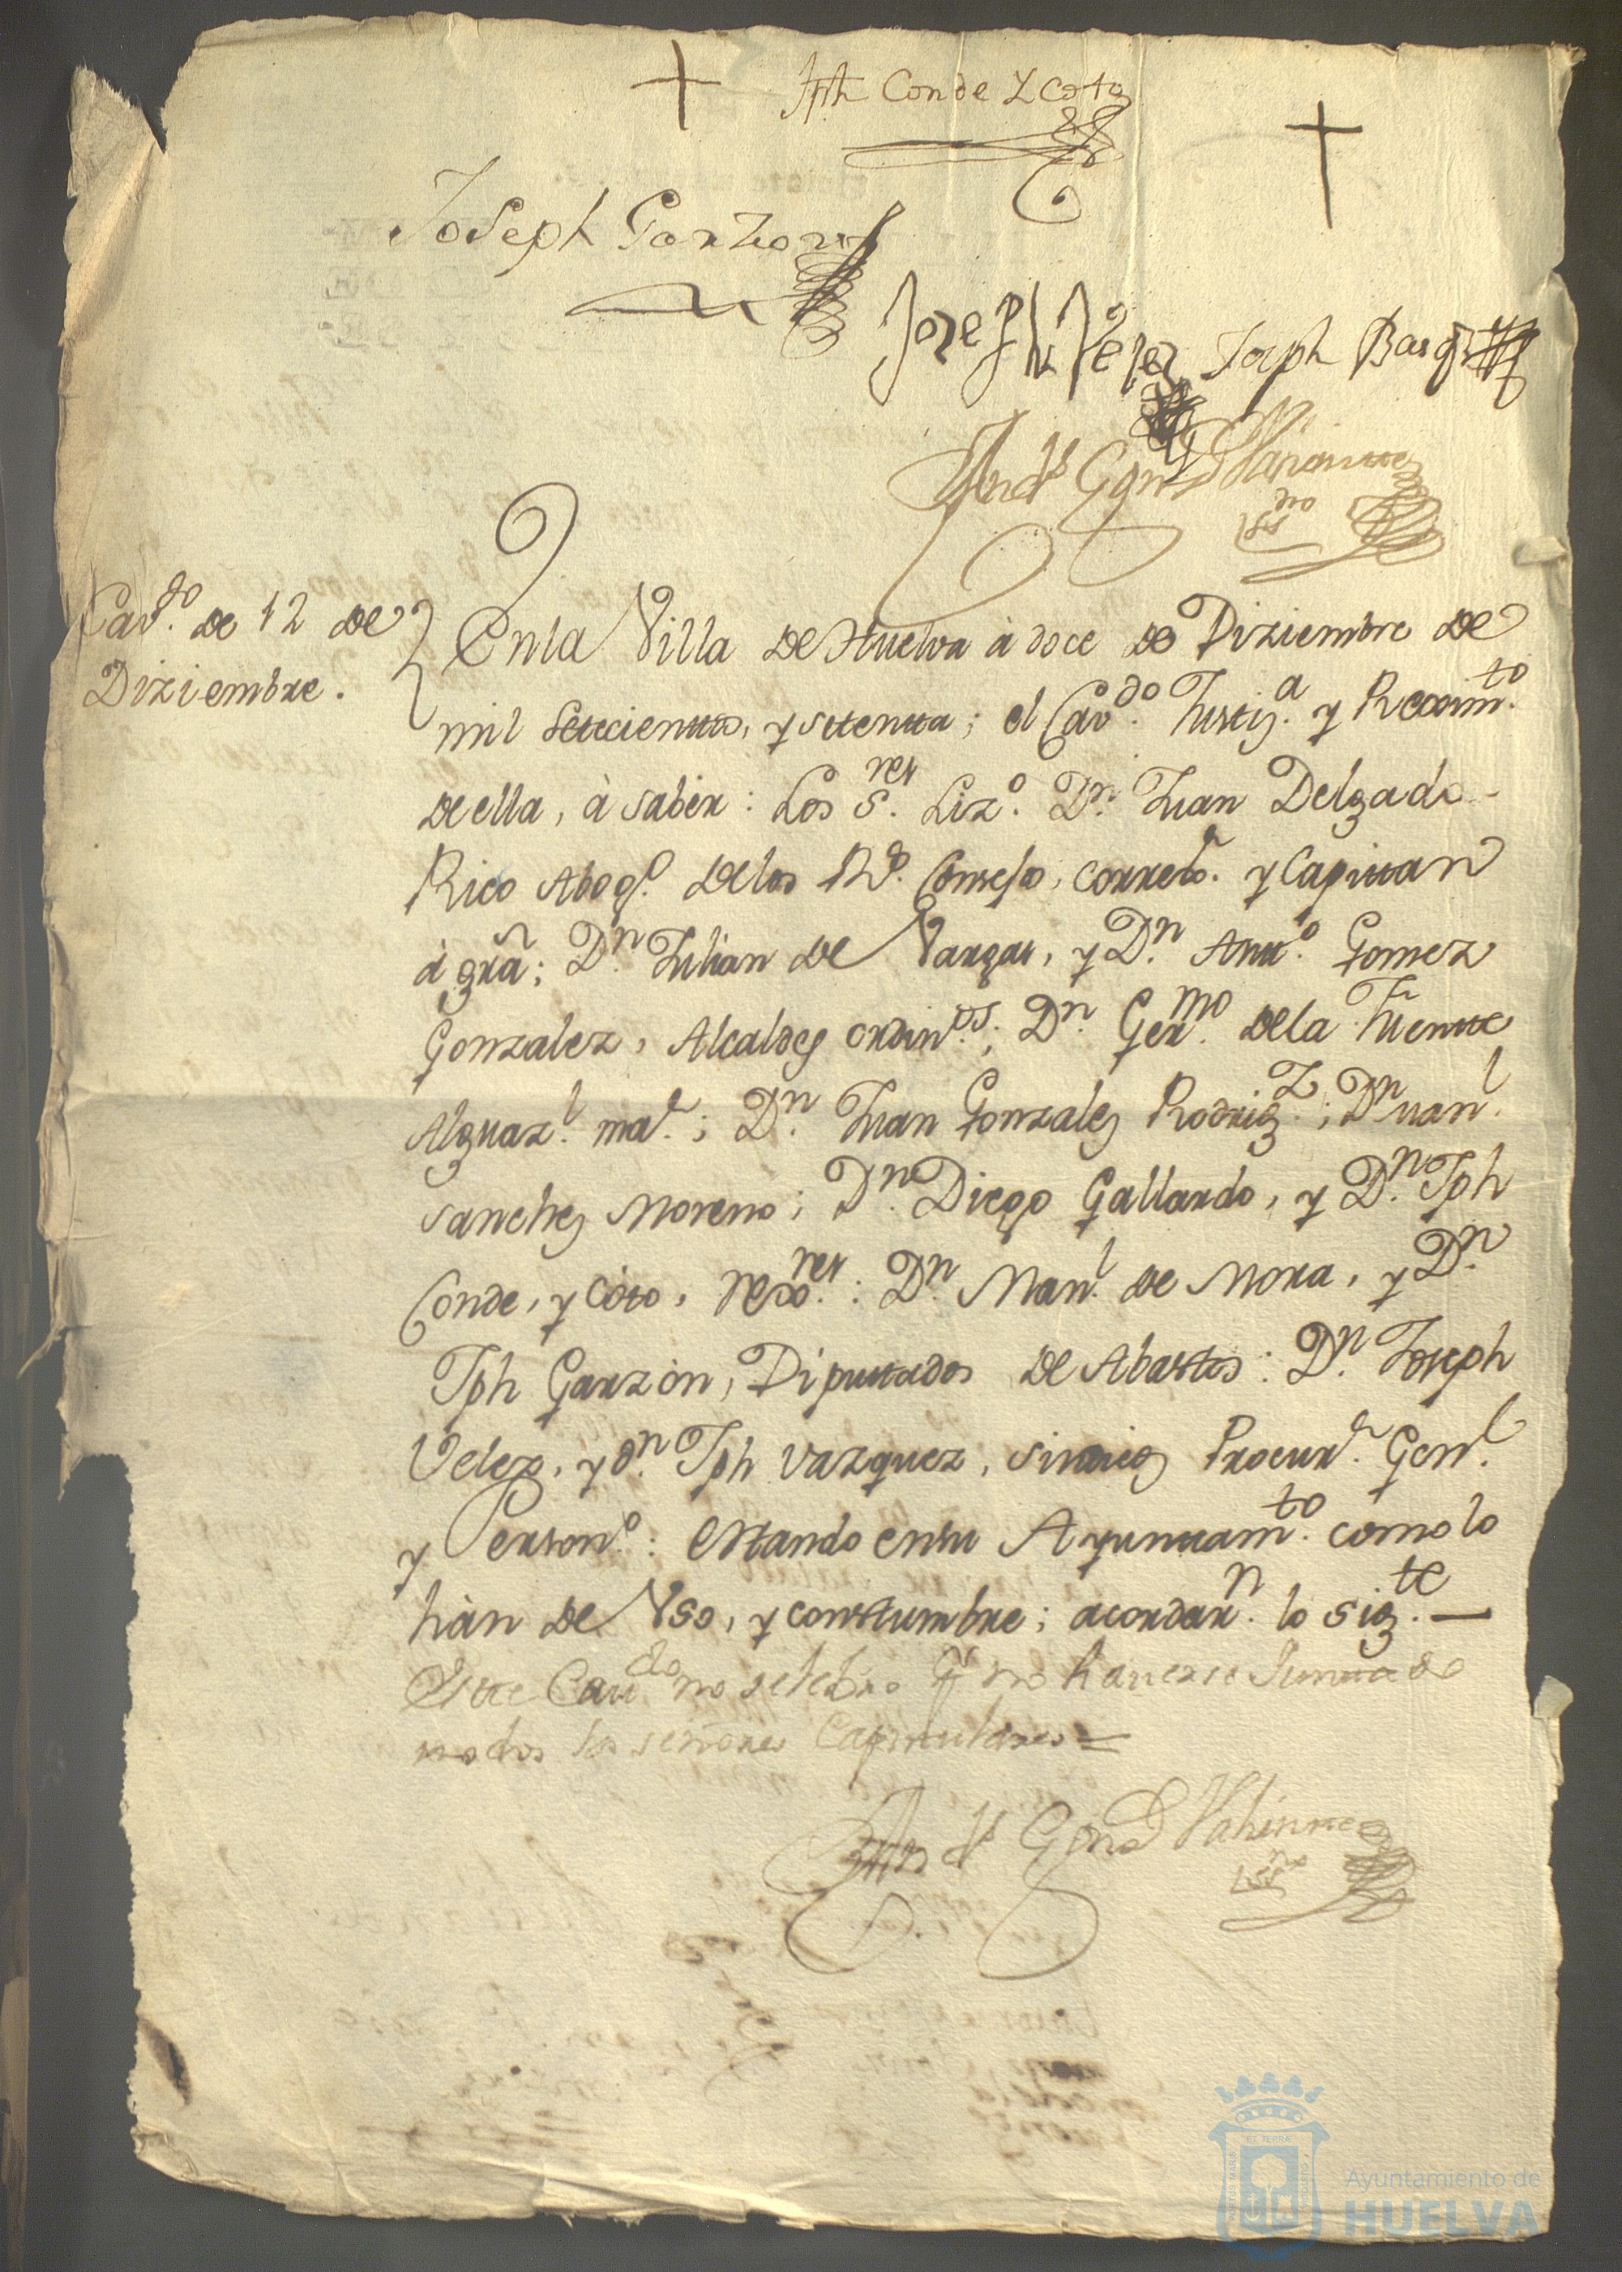 Jph Conde Y Coto
Joseph Garzon
Josef Velez Joseph Basqz
And.s Gonz
Ess.no
Cav.do de 12 de
Diziembre.
En la Villa de Huelva à doce de Diziembre de
mil setecientos, y setenta; el Cav.do Justiz.a y Rexim.to
de ella, à saber: Los S.res Liz.o D.n Juan Delgado
Rico Abog.o de los R.s Consejos, Correx.r y Capitan
à grã; D.n Julian de Vargas, y D.n Ant.o Gomez
Gonzalez, Alcaldes ordin.os; D.n Ger.mo de la Fuente
Alguaz.l ma.r; D.n Juan Gonzalez Rodrig.z; D.n Man.l
Sanchez Moreno; D.n Diego Gallardo, y D.n Jph
Conde, y Coto, rexo.res: D.n Man.l de Mora, y D.n
Jph Garzòn, Diputados de Abastos: D.n Joseph
Velez, y d.n Jph Vazquez, sindicos Procur.r Gen.l
y Person.o: estando en su Ayuntam.to como lo
hàn de Vso, y constumbre; acordar.n lo sig.te —
Este Cav.do no selebro p.r no haverse Juntado
todos los señores Capitulares =
And.s Gonz
Ess.no
ET TERRAE
Ayuntamiento de
HUELVA